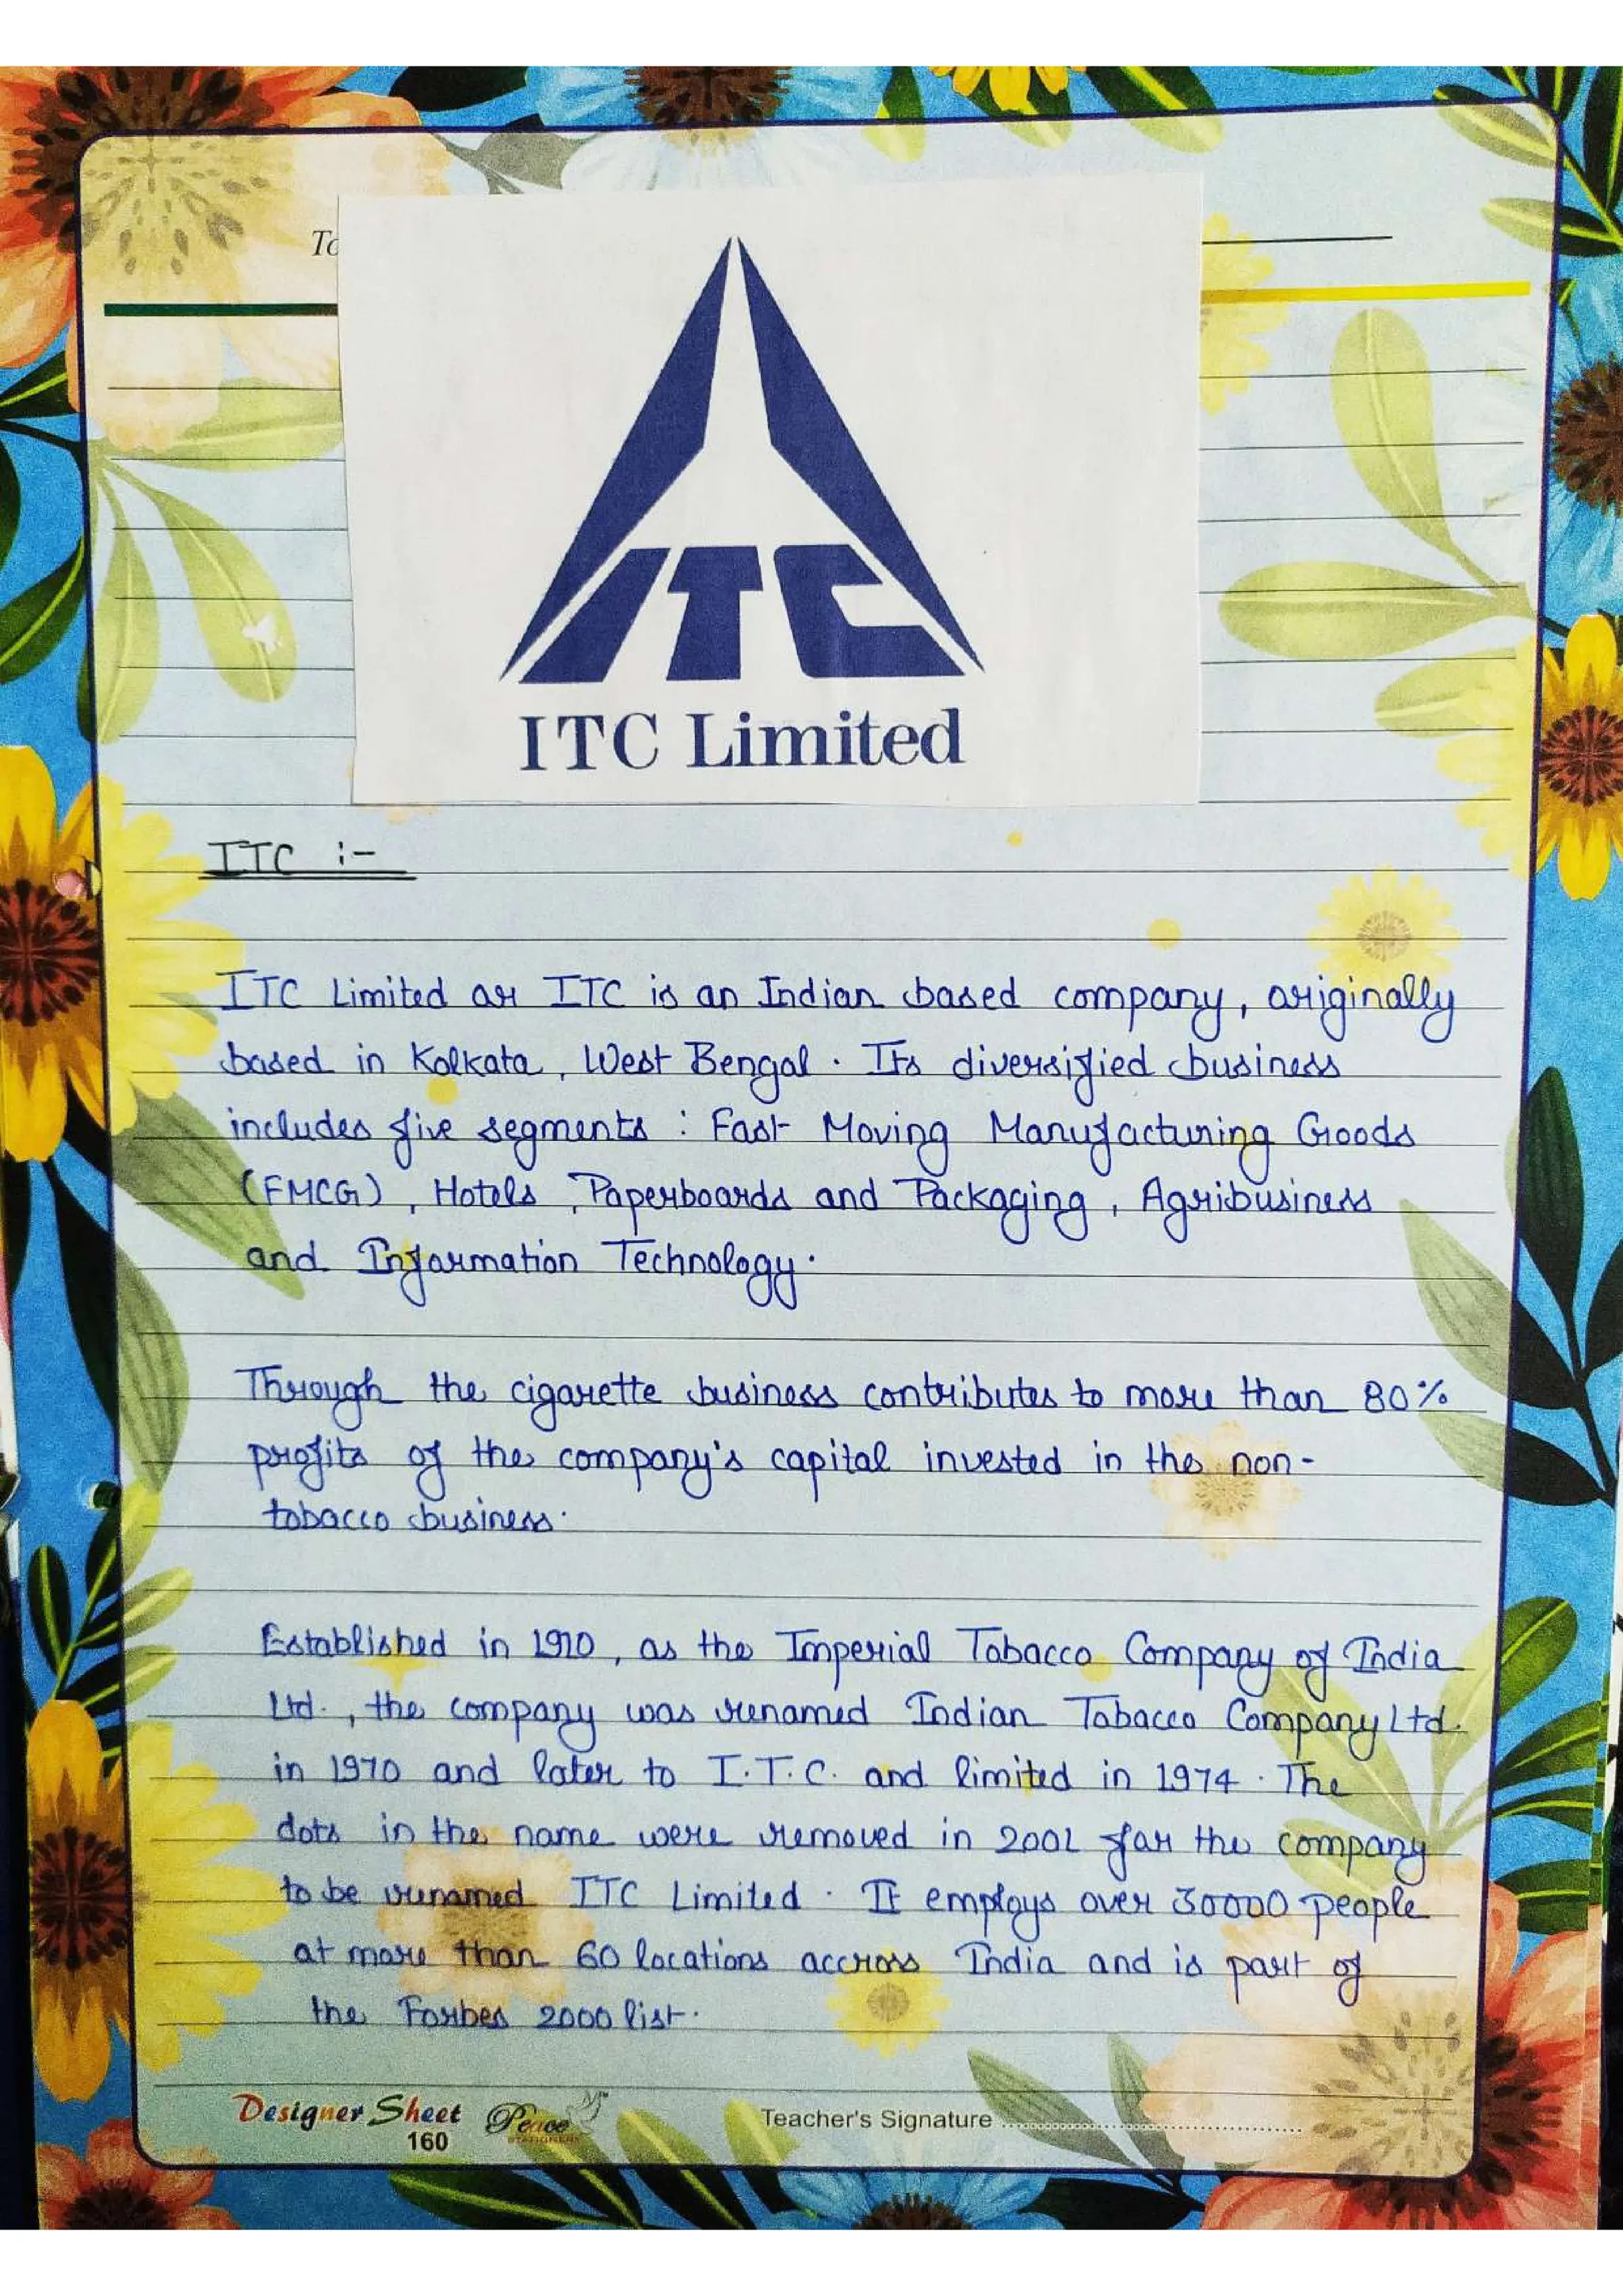 To
ITC
ITC Limited
ITC :-
ITC Limited or ITC is an Indian based company, originally
based in Kolkata, West Bengal. Its diversified business
includes five segments : Fast Moving Manufacturing Goods
(FMCG), Hotels, Paperboards and Packaging, Agribusiness
and Information Technology.
Through the cigarette business contributes to more than 80%
profits of the company's capital invested in the non-
tobacco business.
Established in 1910, as the Imperial Tobacco Company of India
Ltd., the company was renamed Indian Tobacco Company Ltd.
in 1970 and later to I.T.C. and limited in 1974. The
dots in the name were removed in 2001 for the company
to be renamed ITC Limited. It employs over 30000 people
at more than 60 locations accross India and is part of
the Forbes 2000 list.
Designer Sheet Peace Teacher's Signature
160 STATIONERY